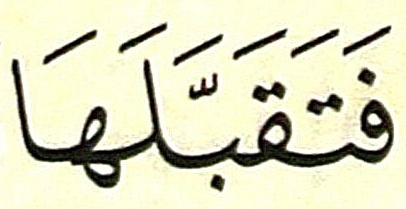 فَتَقَبَّلَهَا